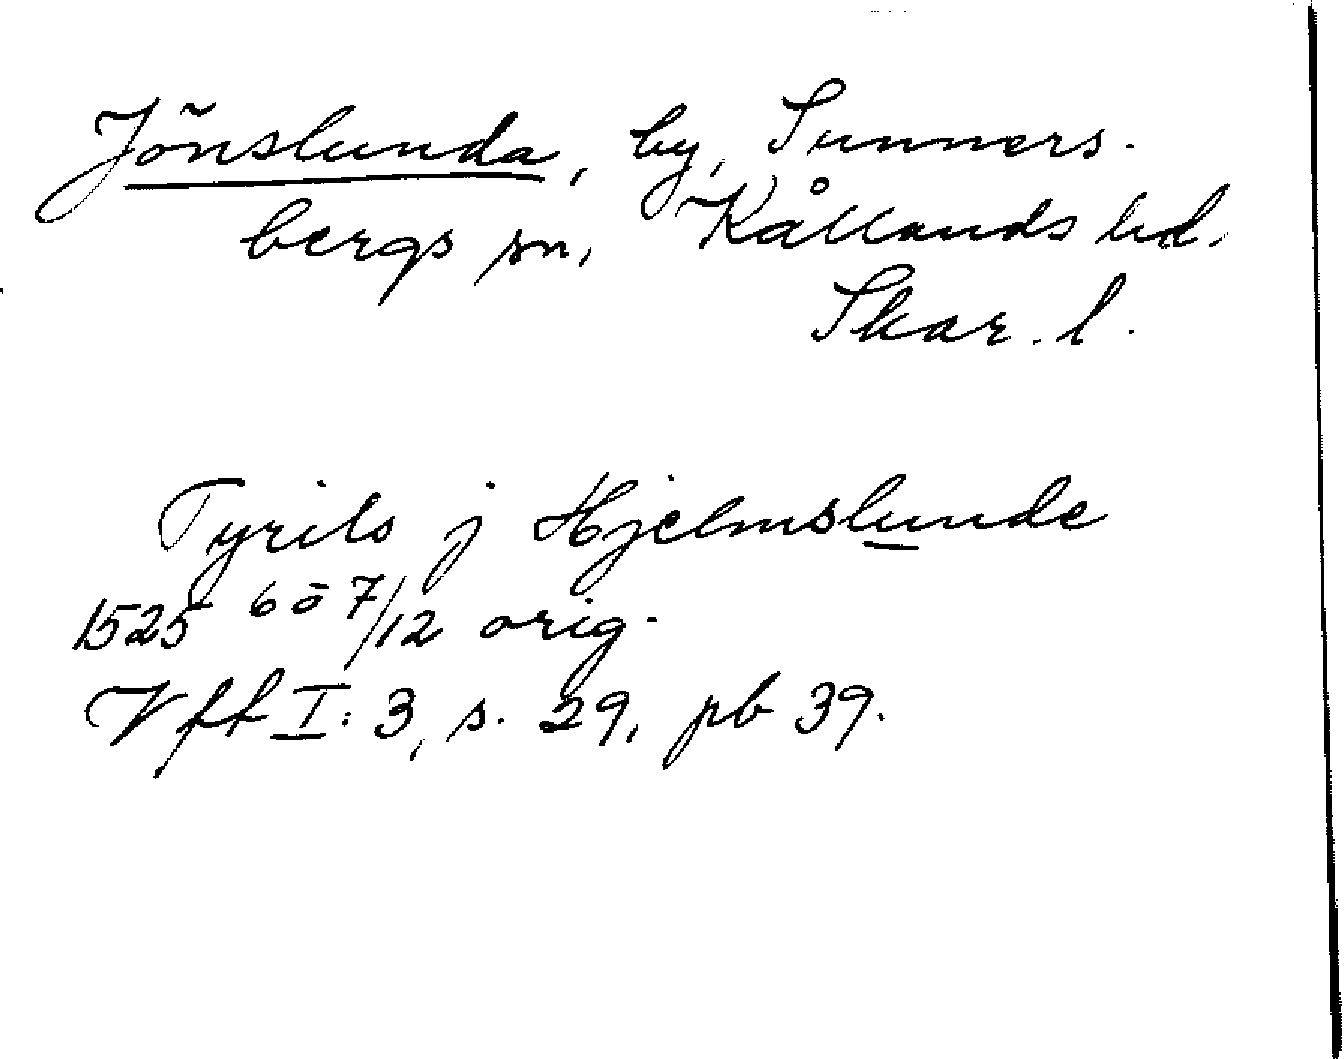 Jönslunda, by, Sunners-
bergs sn, Kållands hd.
Skar. l.
Tyrils j Hjelmslunde
1525 6 ō 7/12 orig.
Vff I: 3, s. 29, pb 39.